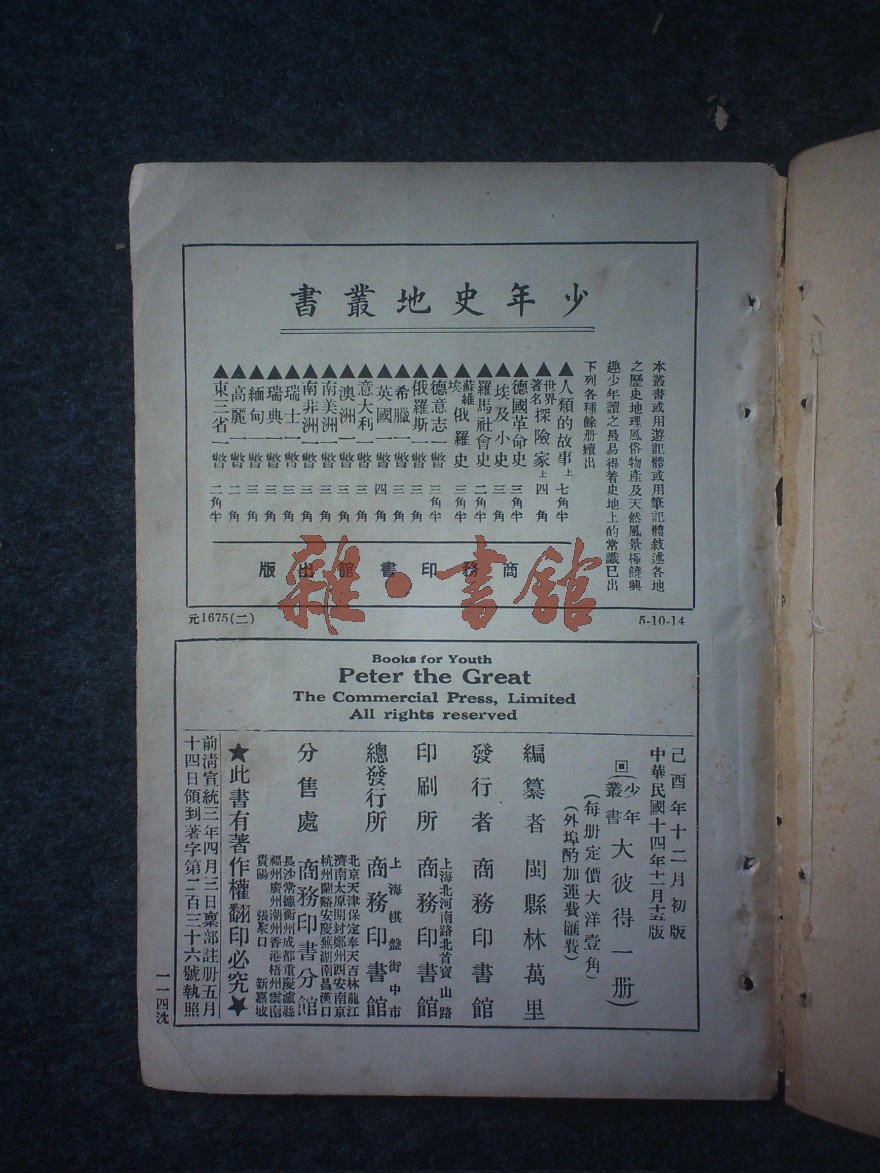 少年史地叢書
本叢書或用遊記體或用筆記體敘述各地
之歷史地理風俗物產及天然風景極饒興
趣少年讀之最易得着史地上的常識已出
下列各種餘册續出
▲人類的故事上 七角半
▲世界著名探險家上 四角
▲德國革命史 三角半
▲埃及小史 三角
▲羅馬社會史 二角半
▲蘇維埃俄羅史 三角半
▲德意志一瞥 三角半
▲俄羅斯一瞥 三角
▲希臘一瞥 三角
▲英國一瞥 四角
▲意大利一瞥 三角
▲澳洲一瞥 三角
▲南美洲一瞥 三角
▲南非洲一瞥 三角
▲瑞士一瞥 三角
▲瑞典一瞥 三角
▲緬甸一瞥 三角
▲高麗一瞥 二角
▲東三省一瞥 二角半
商務印書館出版
雜·書館
元1675(二)
5-10-14
Books for Youth
Peter the Great
The Commercial Press, Limited
All rights reserved
己酉年十二月初版
中華民國十四年十一月十五版
回(少年叢書大彼得一册)
(每册定價大洋壹角)
(外埠酌加運費匯費)
編纂者 閩縣林萬里
發行者 商務印書館
上海北河南路北首寶山路
印刷所 商務印書館
上海棋盤街中市
總發行所 商務印書館
分售處 商務印書分館
北京天津保定奉天吉林龍江
濟南太原開封鄭州西安南京
杭州蘭谿安慶蕪湖南昌漢口
長沙常德衡州成都重慶瀘縣
福州廣州潮州香港梧州雲南
貴陽 張家口 新嘉坡
★此書有著作權翻印必究★
前清宣統三年四月三日稟部註册五月
十四日領到著字第二百三十六號執照
一一四沈